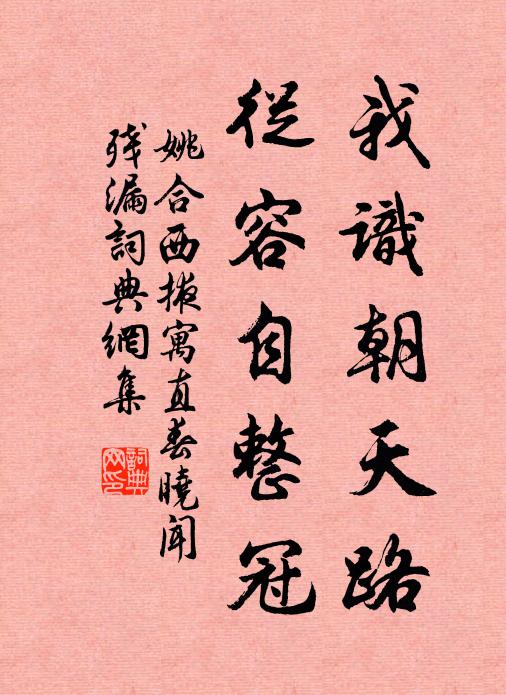 我識朝天路
從容自整冠
姚合西掖寓直春曉聞
殘漏詞典網集
詞典
网印